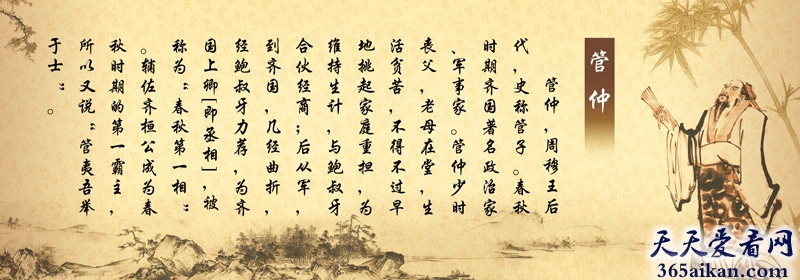 管仲
管仲，周穆王后
代，史称管子。春秋
时期齐国著名政治家
、军事家。管仲少时
丧父，老母在堂，生
活贫苦，不得不过早
地挑起家庭重担，为
维持生计，与鲍叔牙
合伙经商；后从军，
到齐国，几经曲折，
经鲍叔牙力荐，为齐
国上卿[即丞相]，被
称为“春秋第一相”
。辅佐齐桓公成为春
秋时期的第一霸主，
所以又说“管夷吾举
于士”。
天天爱看网
365aikan.com